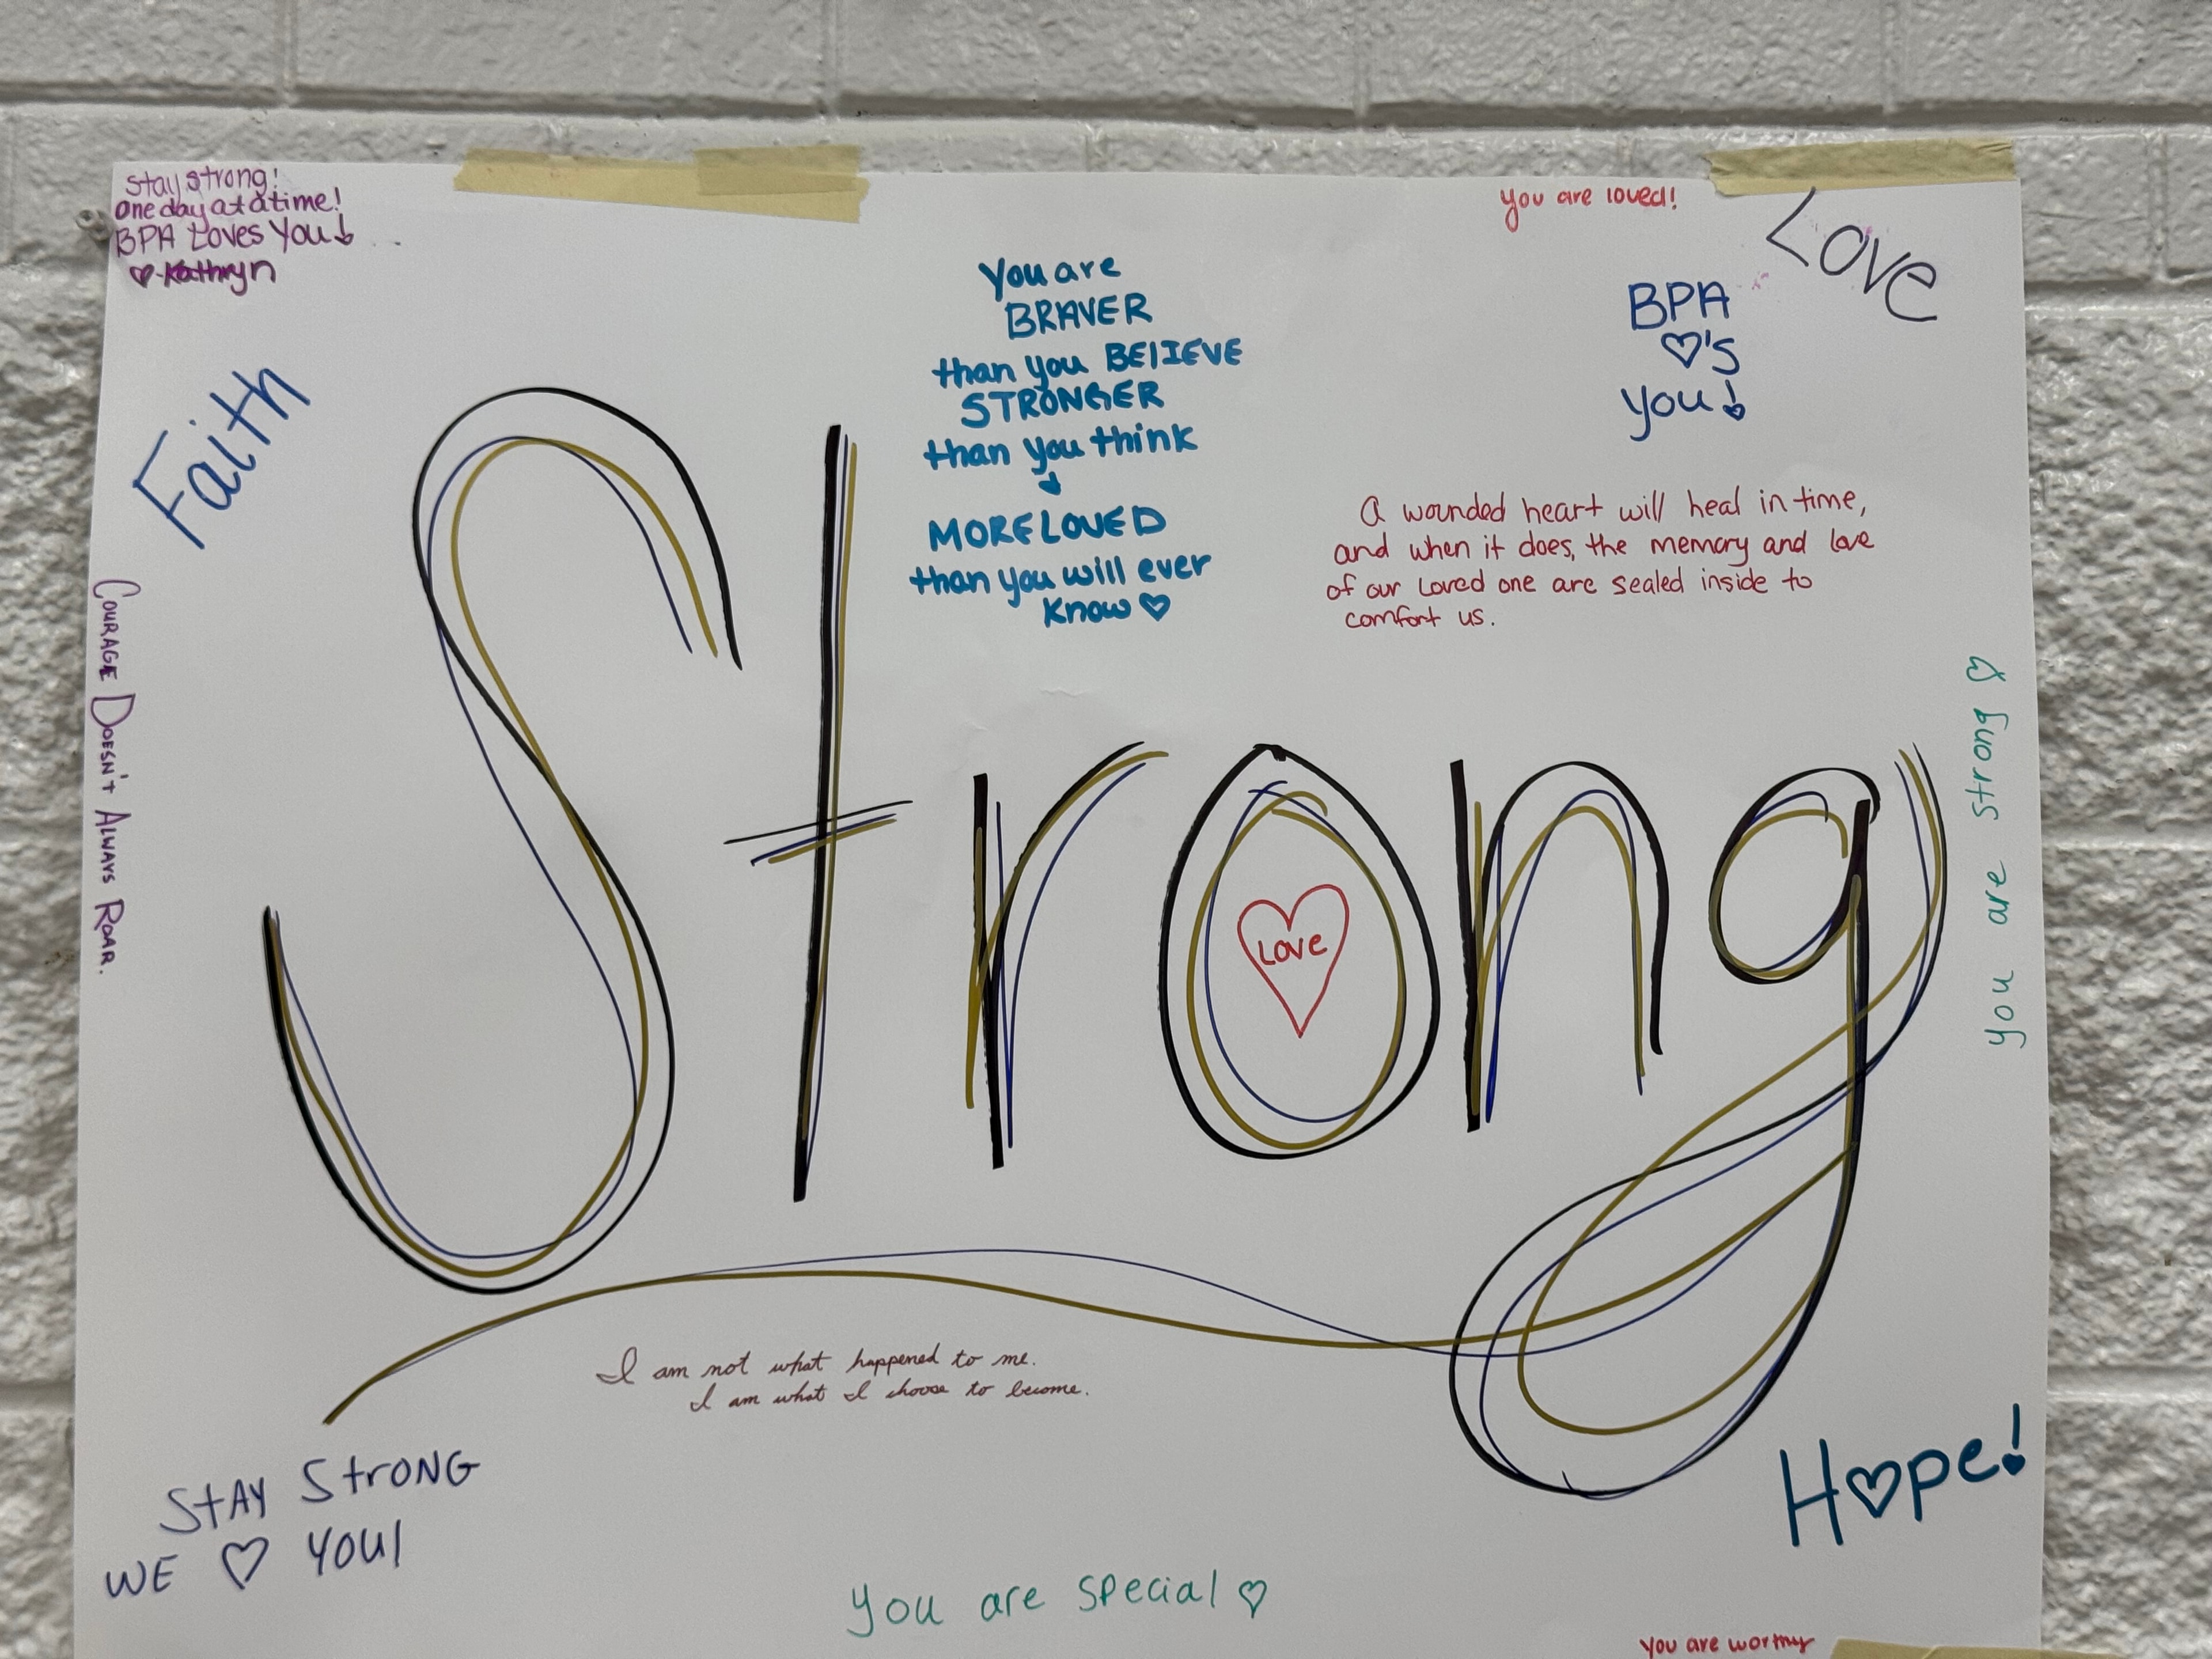 Stay strong!
One day at a time!
BPA Loves You!
♡-Kathryn
You are loved!
Love
You are
BRAVER
than you BELIEVE
STRONGER
than you think
MORE LOVED
than you will ever
know ♡
BPA
♡'s
you!
Faith
A wounded heart will heal in time,
and when it does, the memory and love
of our loved one are sealed inside to
comfort us.
COURAGE DOESN'T ALWAYS ROAR.
you are strong ♡
Strong
Love
I am not what happened to me.
I am what I choose to become.
STAY STrONG
WE ♡ YOU!
H♡pe!
you are special ♡
you are worthy